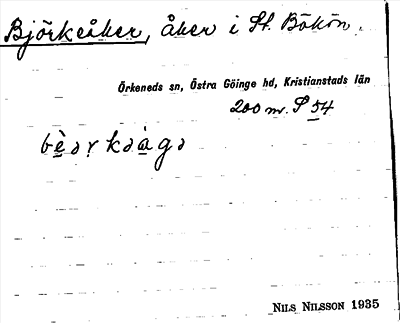 Björkeåker, åker i St. Bökön.
Örkeneds sn, Östra Göinge hd, Kristianstads län
200 m. S 54
bèər̥kəàgə
NILS NILSSON 1935